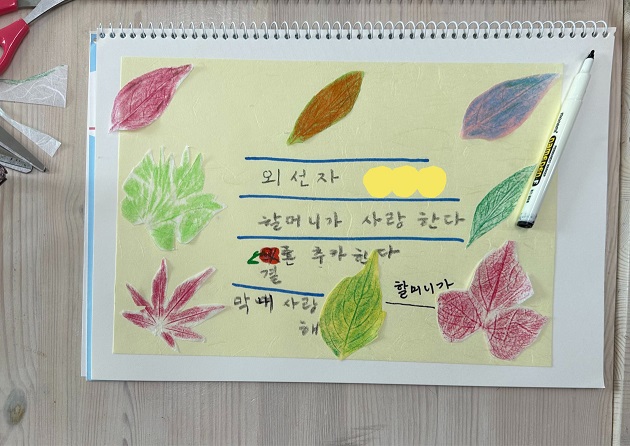 외 선 자
할머니가 사랑 한다
혼 추카한다
결
막내 사랑
해
할머니가